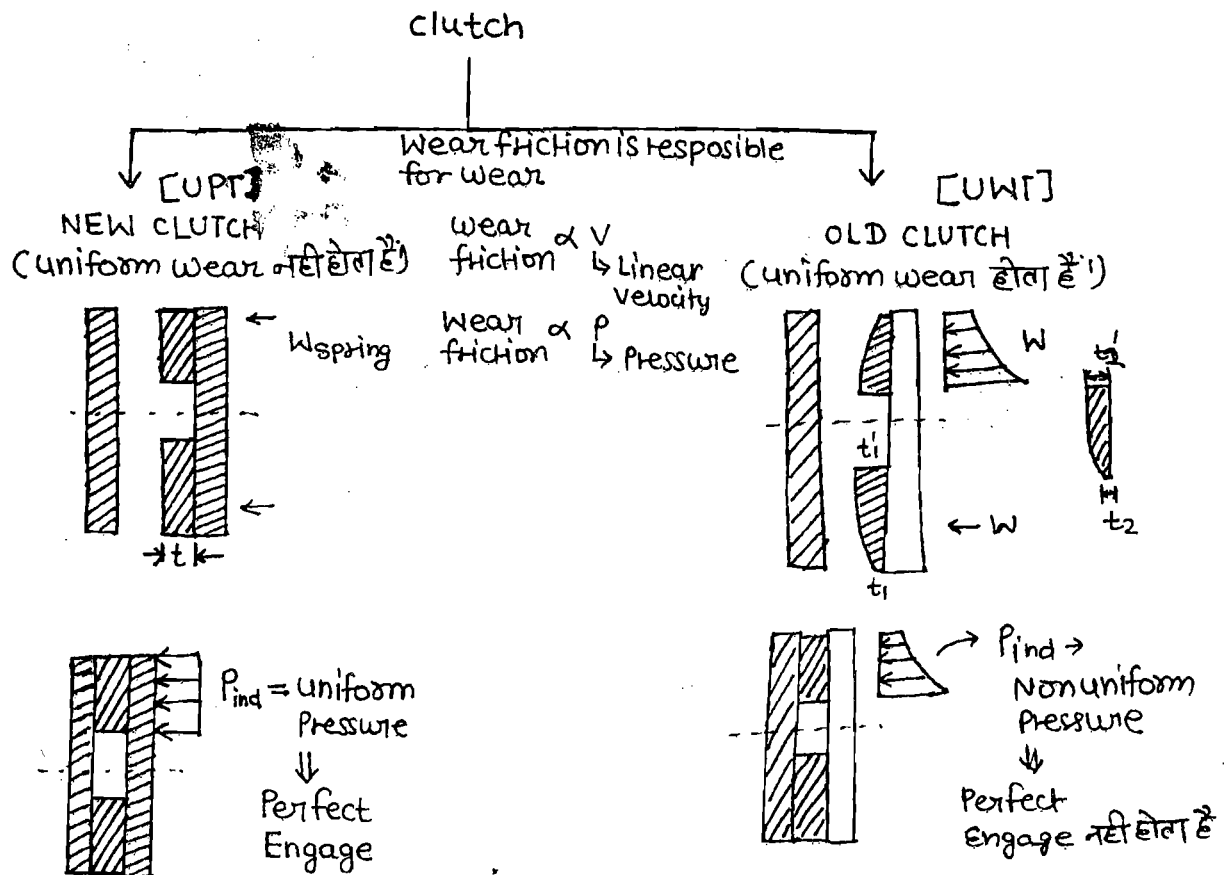 clutch
Wear friction is resposible
for wear
[UPT]
NEW CLUTCH
(uniform wear नही होता है।)
wear
friction ∝ V
↳ Linear
velocity
Wear
friction ∝ P
↳ Pressure
[UWT]
OLD CLUTCH
(uniform wear होता है।)
Wspring
t
W
t1'
← W
t1
t2
Pind = uniform
Pressure
⇓
Perfect
Engage
Pind →
Nonuniform
Pressure
⇓
Perfect
Engage नही होता है